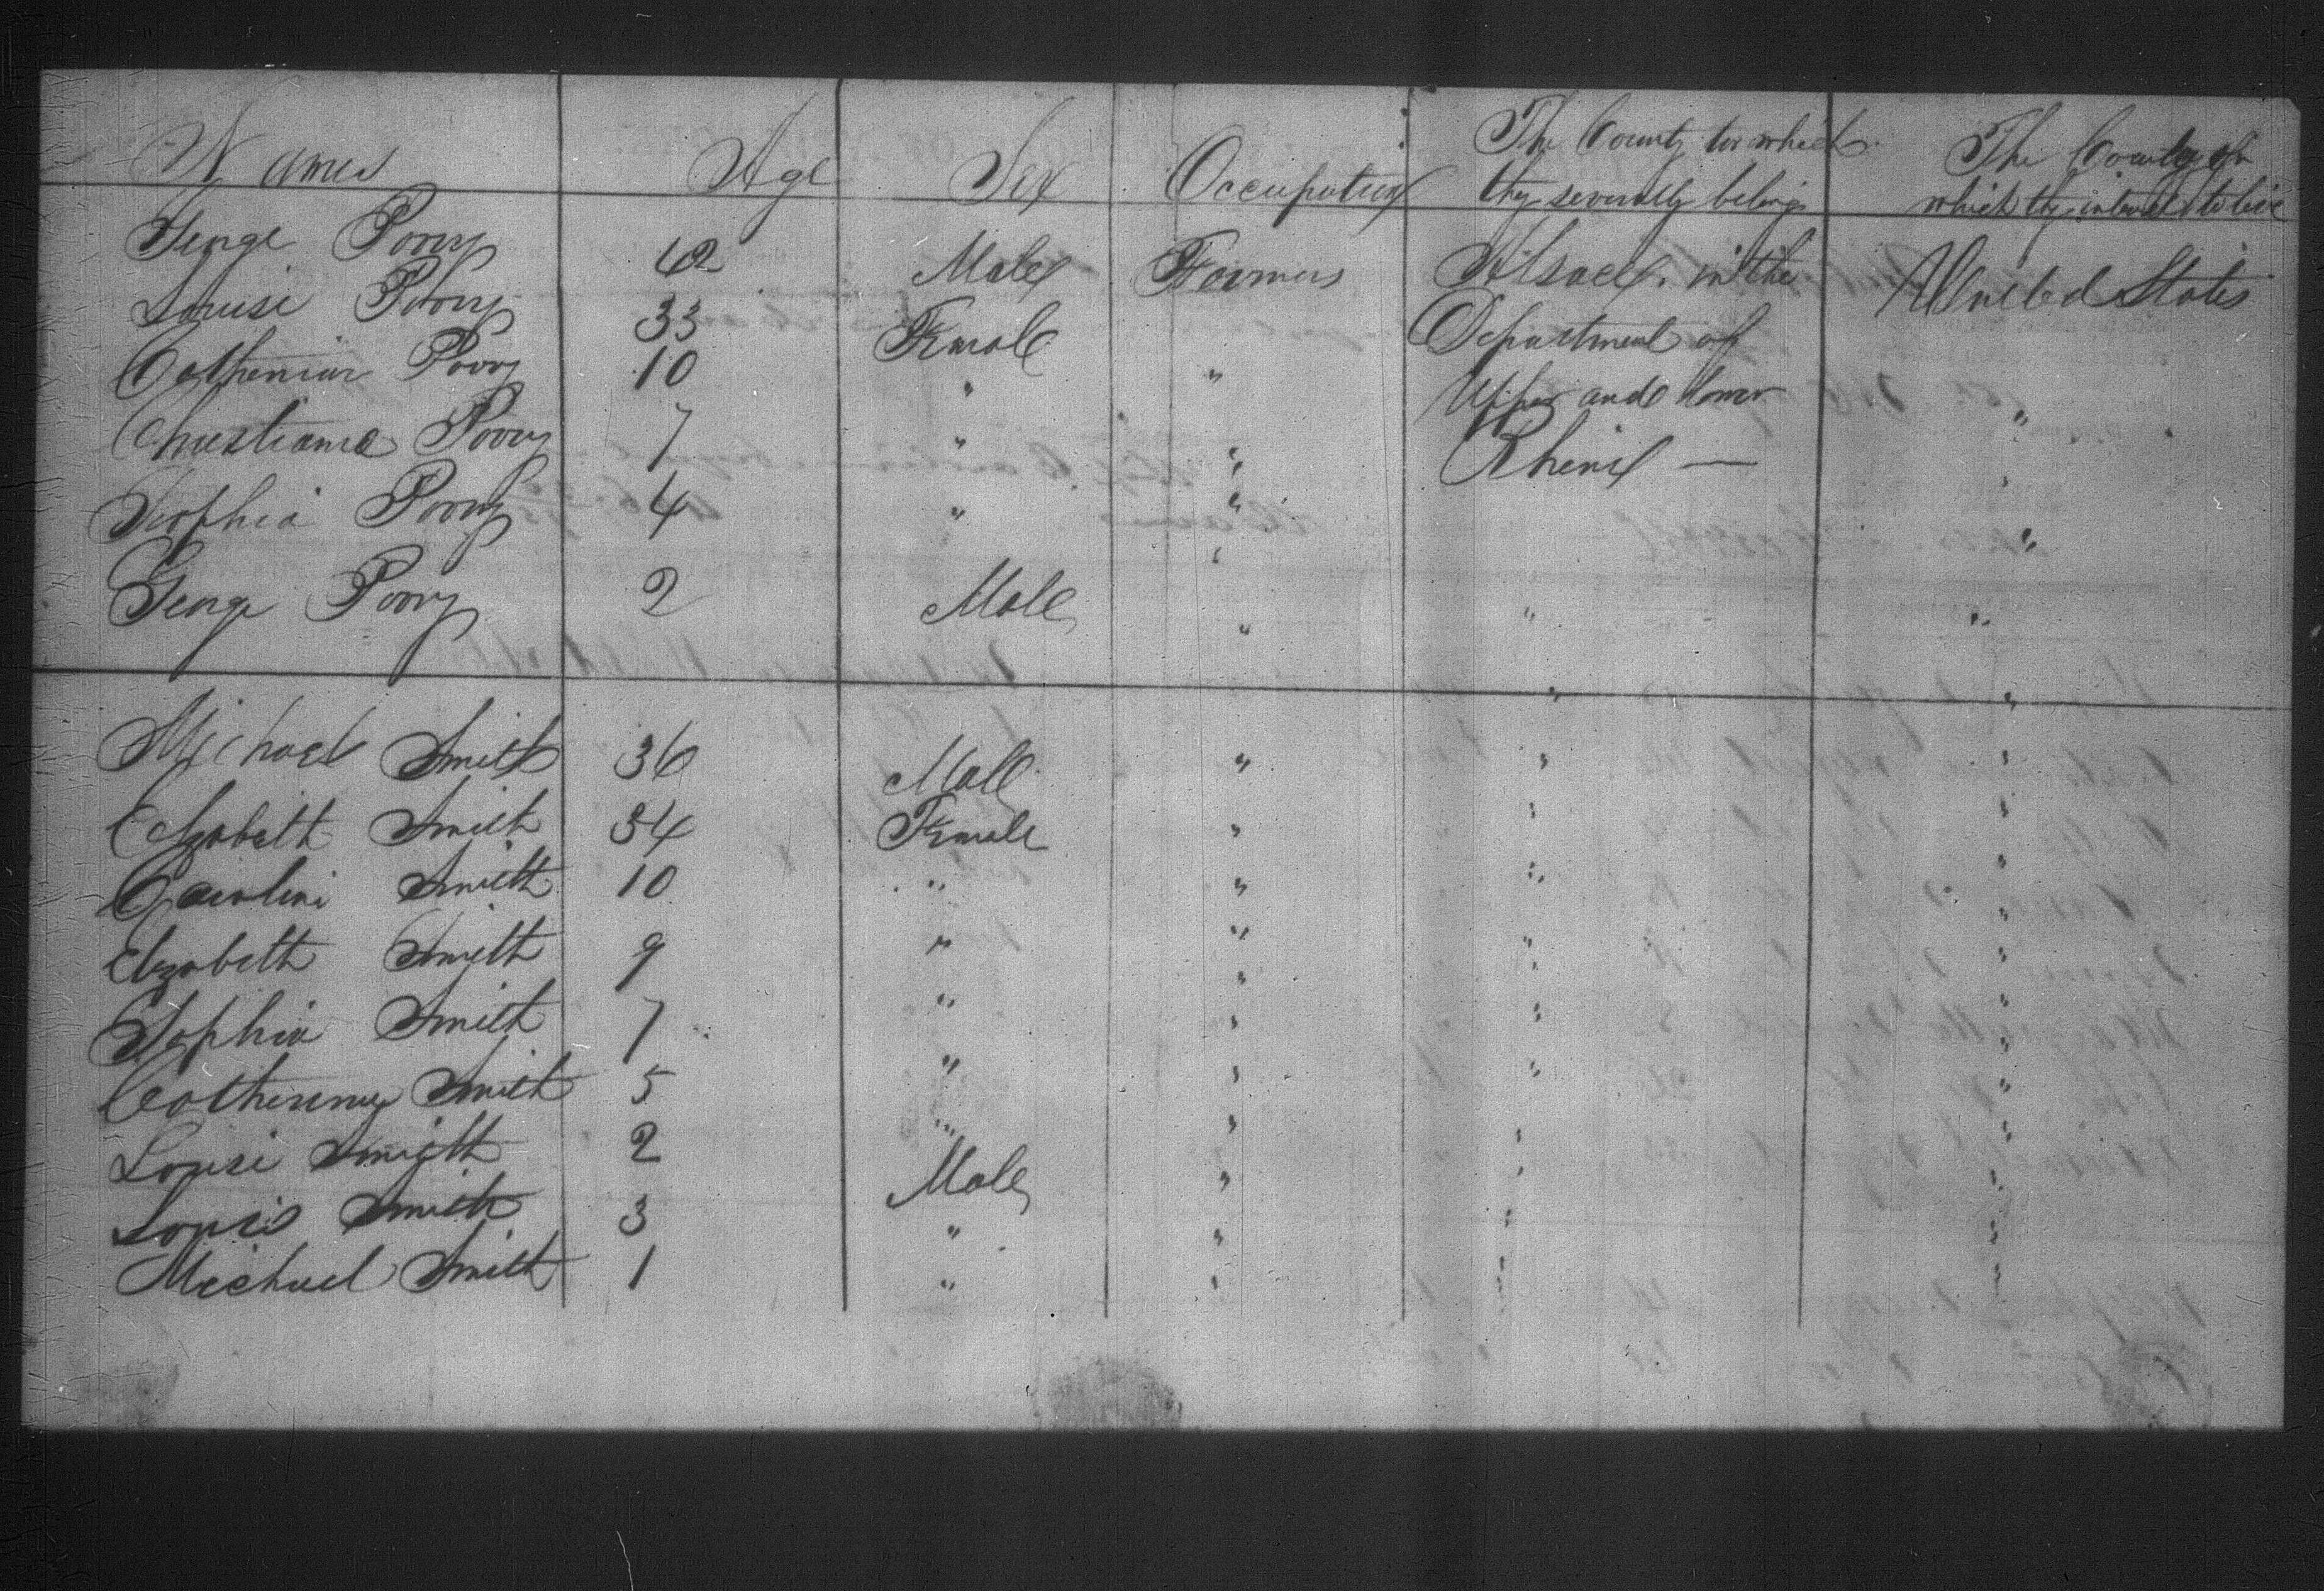 Names Age Sex Occupation The County to which they severally belong The County in which they intend to live
George Porry 42 Male Farmers Alsace in the United States
Louise Porry 33 Female Department of
10 " " Upper and lower "
Christiana Porry 7 " " Rhine —
Sophia Porry 4 " " "
George Porry 2 Male " " "
Michael Smith 36 Male " " "
Elizabeth Smith 34 Female " " "
Caroline Smith 10 " " " "
Elizabeth Smith 9 " " " "
Sophia Smith 7 " " " "
Smith 5 " " " "
Louise Smith 2 " " " "
Louis Smith 3 Male " " "
Michael Smith 1 " " " "